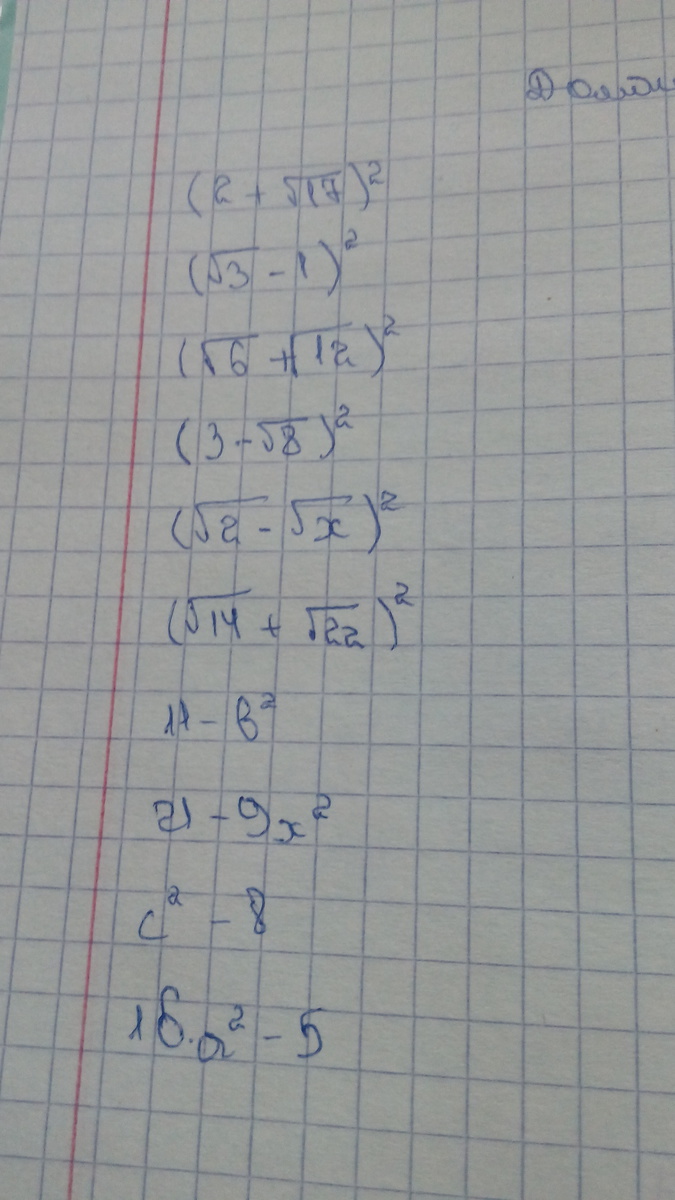 (2 + √17)²
(√3 - 1)²
(√6 + √12)²
(3 - √8)²
(√2 - √x)²
(√14 + √22)²
11 - b²
21 - 9x²
c² - 8
16·a² - 5